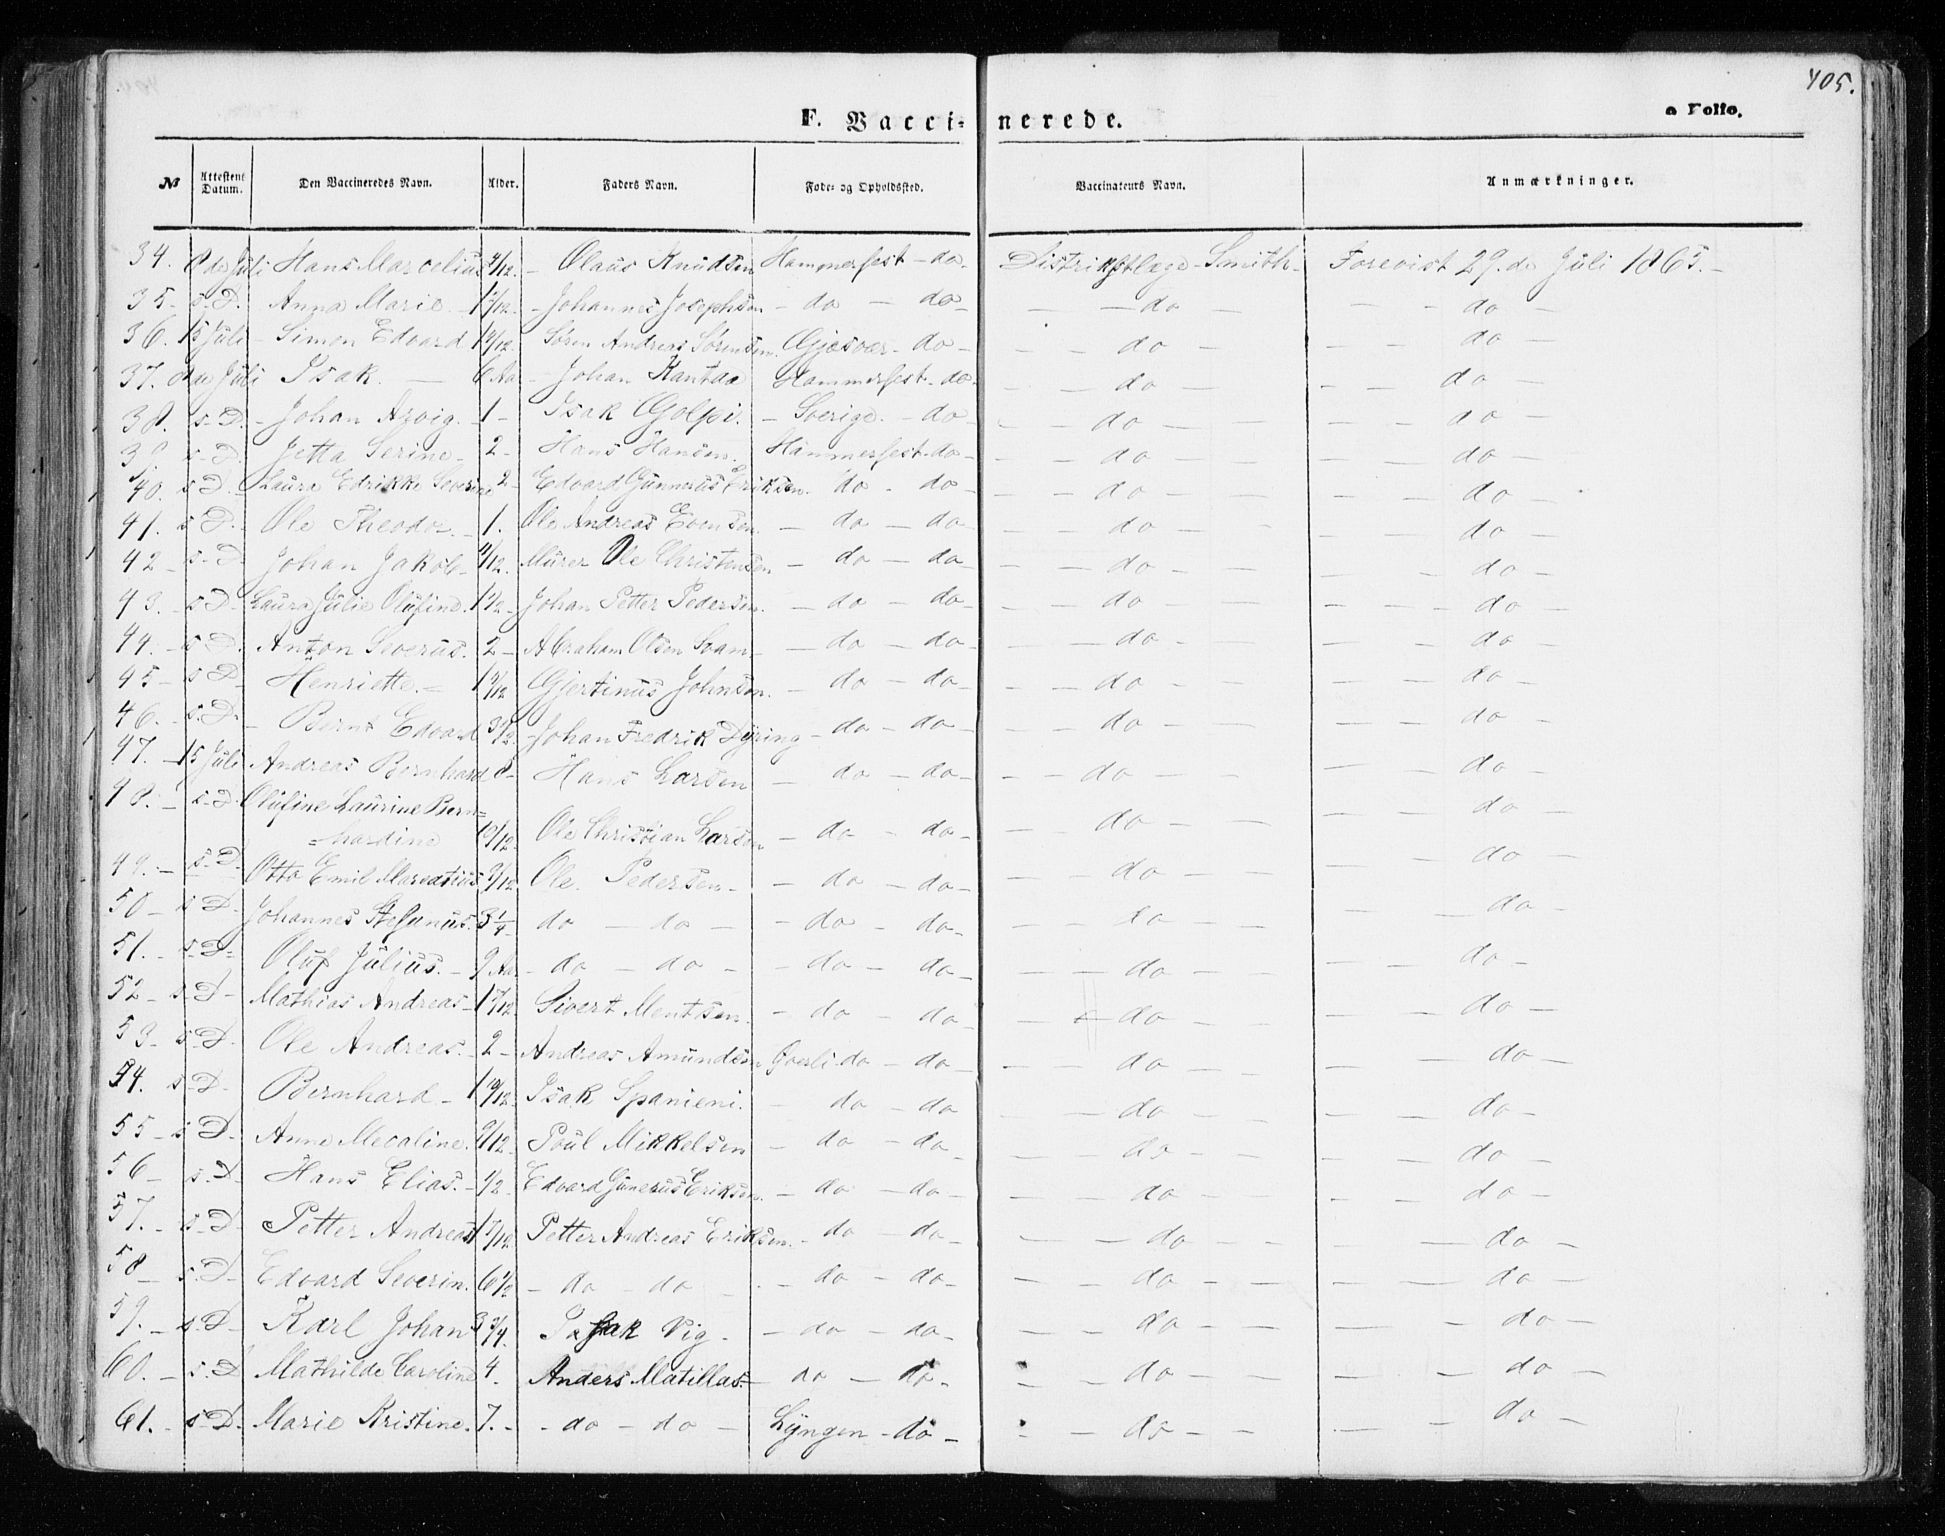 405.
F. Vacci- nerede. a Folio.
№ Attestens Datum. Den Vaccineredes Navn. Alder. Faders Navn. Føde- og Opholdssted. Vaccinateurs Navn. Anmærkninger.
34. 8de Juli Hans Marcelius 4/12. - Olaus Knudsen Hammerfest - do - Distriktslæge Smith. Forevist 29. de Juli 1865. -
35 - s. D. Anna Marie - - Johannes Josephsen - do - do - - do - - do -
36. 15 Juli - Simon Edvard Søren Andreas Sørensen. Gjesvær - do - - do - - do -
37. Juli Isak. - 6 Aar - Johan Kantda Hammerfest - do - - do - - do -
38. s. D. - Johan Arvig. 1 - Isak Golpi. - Sverige. - do - do - - do -
39 s D. Jetta Serine - 2 - Hans Hansen. Hammerfest - do - - do - - do -
40. s D. Laura Edrikke Severine 2 - Edvard Gunnerus Eriksen. do - do - - do - - do -
41. s D. - Ole Theodor - 1. Ole Andreas Evensen. - do - do - - do - - do -
42 - s. D Johan Jakob - 11/12. Murer Ole Christensen - do - do - - do - - do -
43. - s D. Laura Julie Olufine. 1 1/2 - Johan Petter Pedersen. - do - do - - do - - do -
44. - s D. Anton Severus. 2 - Abraham Olsen Svam - - do - do - - do - - do -
45 - s D - Henriette. - Gjertinus Johnsen. - do - do - - do - - do -
46. - s. D. - Bernt Edvard - Johan Fredrik Dyring - do - do - - do - - do -
47. - 15 Juli Andreas Bernhard 8 - Hans Larsen - do - do - - do - - do -
48. - s. D. Olufine Laurine Bern=
=hardine 10/12. Ole Christian Larsen - do - do - - do - - do -
49. - s. D. Otto Emil Mareatius 9/12 Ole. Pedersen - - do - do - - do - - do -
50 - s D. Johannes Stefanus. 3 1/4 do - do - - do - do - - do - - do -
51. - s. D - Oluf Julius. - 9 Aar. - do - do - - do - do - - do - - do -
52 - s D - Mathias Andreas - 1 7/12 Sivert Mentsen. - do - do - - do - - do -
53 - s. D. Ole Andreas. - 2 - Andreas Amundsen do - do - - do - - do -
54. s - D. Bernhard - 1 10/12. Isak Spanieni. - do - do - do - - do -
55 - s D - Anne Mecaline. 9/12 Poul Mikkelsen - do - do - - do - - do -
56 - s. D - Hans Elias. - 1/2 - Edvard Gunerus Eriksen. - do - do - - do - - do -
57. - s - D - Petter Andreas 1 7/12 Petter Andreas Eriksen. - do - do - - do - - do -
58 - s. D - Edvard Severin. 6 1/2 - do - do - - do - do - - do - - do -
59. - s. D - Karl Johan 3 3/4 Isak Vig. - do - do - - do - - do -
60. - s. D Mathilde Caroline 4. Anders Matillas. - do - do - - do - - do -
61. - s. D. Marie Kristine. 7. - - do - do - Lyngen - do - - do - - do -